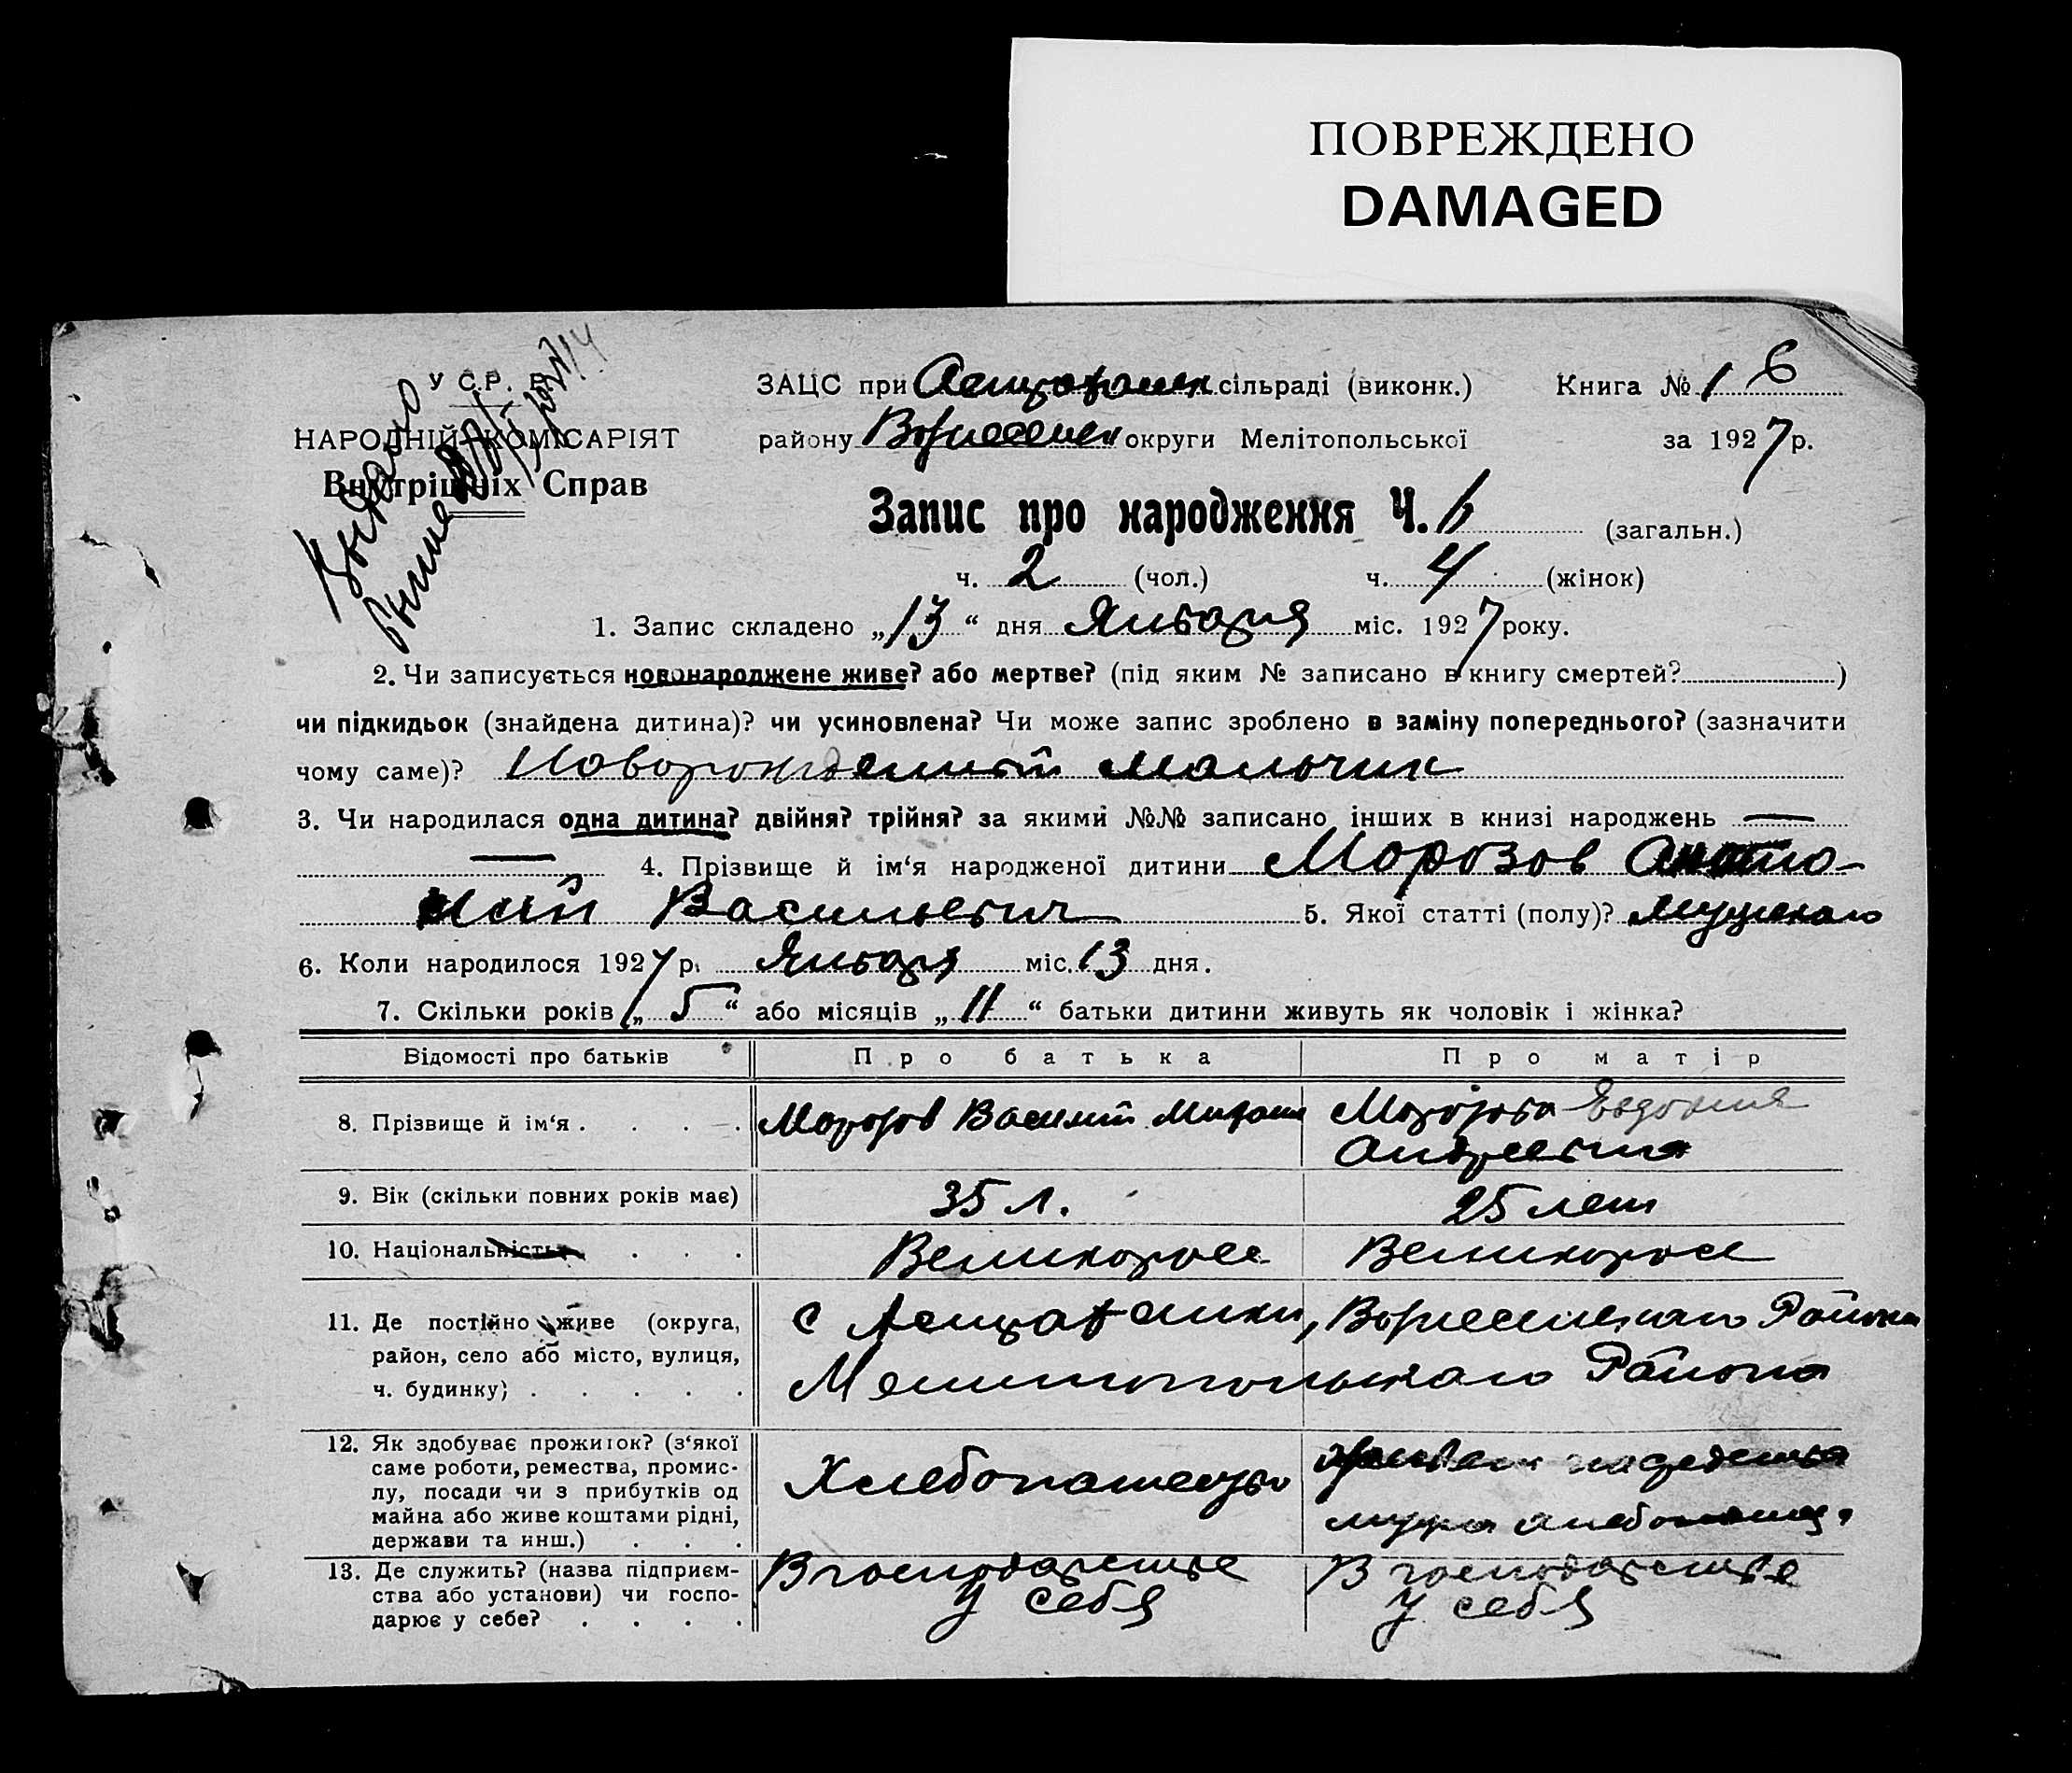 ПОВРЕЖДЕНО
DAMAGED
У.С.Р.Р.
НАРОДНІЙ КОМІСАРІЯТ
Внутрішніх Справ
Выдано
ЗАЦС при сільраді (виконк.) Книга № 1
району Вознесенск округи Мелітопольської за 1927 р.
Запис про народження Ч. 6 (загальн.)
ч. 2 (чол.) ч. 4 (жінок)
1. Запис складено „13“ дня Января міс. 1927 року.
2. Чи записується новонароджене живе? або мертве? (під яким № записано в книгу смертей? )
чи підкидьок (знайдена дитина)? чи усиновлена? Чи може запис зроблено в заміну попереднього? (зазначити
чому саме)? Новорожденный мальчик
3. Чи народилася одна дитина? двійня? трійня? за якими №№ записано інших в книзі народжень —
— 4. Прізвище й ім‘я народженої дитини Морозов Анато-
лий Васильевич 5. Якої статті (полу)? Мужскаго
6. Коли народилося 1927 р. Января міс. 13 дня.
7. Скільки років „5“ або місяців „11“ батьки дитини живуть як чоловік і жінка?
Відомості про батьків Про батька Про матір
8. Прізвище й ім‘я . . . . Морозов Василий Морозова Евдокия
Андреевна
9. Вік (скільки повних років має) 35 л. 25 лет
10. Національність . . . Великоросс Великоросс
11. Де постійно живе (округа, район, село або місто, вулиця, ч. будинку) . . . . . с Вознесенскаго Района
Мелитопольскаго Района
12. Як здобуває прожиток? (з‘якої
саме роботи, ремества, промис-
лу, посади чи з прибутків од
майна або живе коштами рідні,
держави та инш.) . . . Хлебопашество мужа
13. Де служить? (назва підприєм-
ства або установи) чи госпо-
дарює у себе? . . . . В господарстве у себя В господарстве у себя